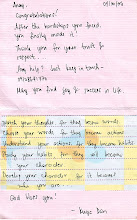 Congratulations!
After the hardships you faced,
you finally made it!
Thank you for your trust &
respect.
Any help? Just keep in touch -
May you find joy & success in life.
Watch your thoughts for they become words
Choose your words for they become actions
Understand your actions for they become habits
Study your habits for they will become
your character
Develop your character for it becomes
who you are.
God bless you.